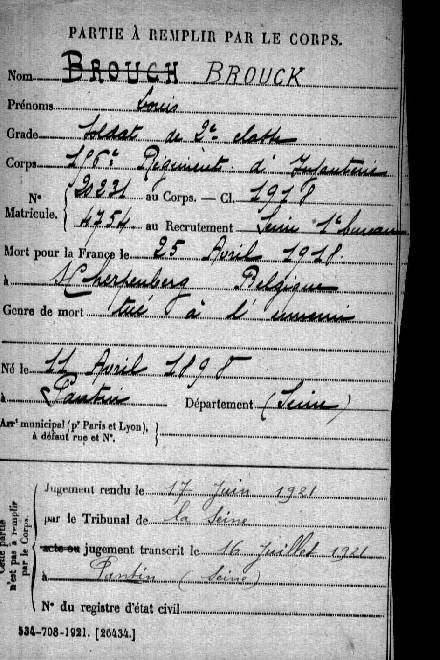 PARTIE À REMPLIR PAR LE CORPS.
Nom BROUCH BROUCK
Prénoms Louis
Grade Soldat de 2e classe
Corps 156e Régiment d'Infanterie
N° Matricule. 20231 au Corps. — Cl. 1918
4754 au Recrutement Seine 1er bureau
Mort pour la France le 25 Avril 1918
à Belgique
Genre de mort tué à l'ennemi
Né le 11 Avril 1898
à Pantin Département (Seine)
Arrt municipal (pr Paris et Lyon),
à défaut rue et N°.
Cette partie n'est pas à remplir par le Corps.
Jugement rendu le 17 Juin 1921
par le Tribunal de la Seine
acte ou jugement transcrit le 16 Juillet 1921
à Pantin (Seine)
N° du registre d'état civil
534-708-1921. [26434.]